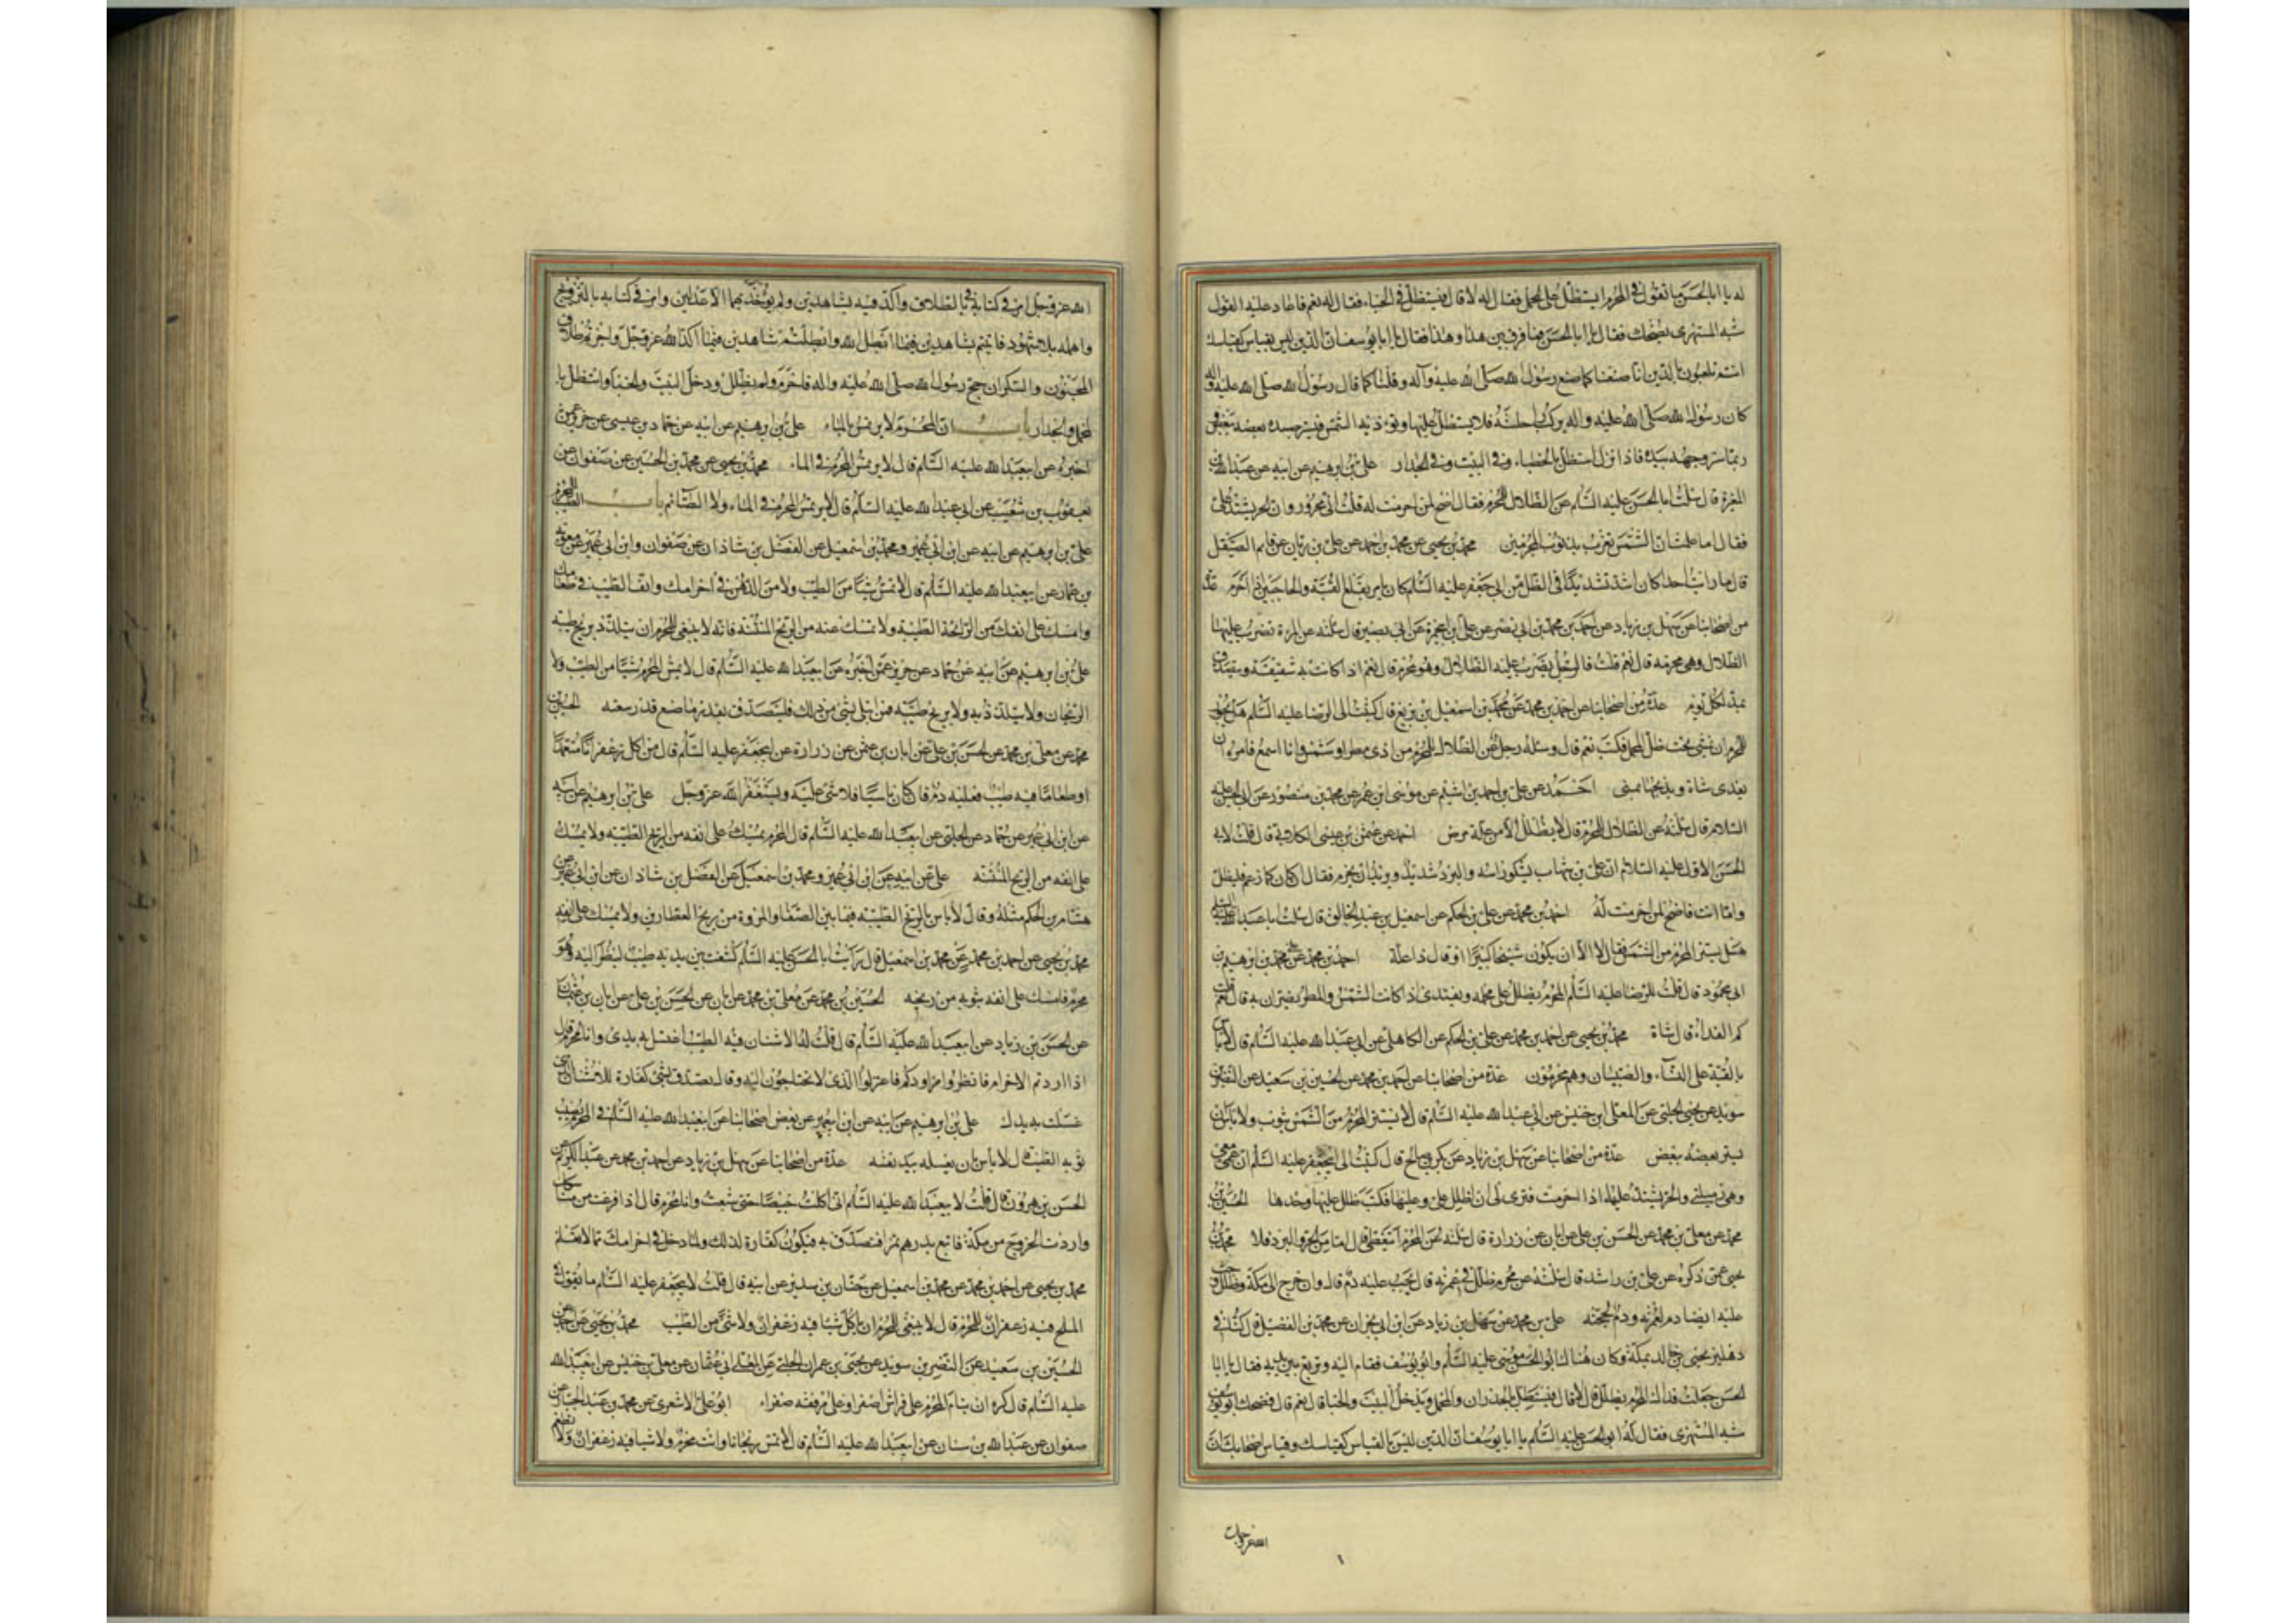 له يا ابا الحسن ما تقول في المحرم ايستظل على المحمل فقال له لا قال فيستظل في الخباء فقال له نعم فاعاد عليه القول
شبه المستهزى يضحك فقال يا ابا الحسن فما فرق بين هذا وهذا فقال يا ابا يوسف ان الدين ليس بقياس كقياسك
انتم تلعبون بالدين انا صنعنا كما صنع رسول الله صلى الله عليه وآله وقلنا كما قال رسول الله صلى الله عليه واله
كان رسول الله صلى الله عليه واله يركب راحلته فلا يستظل عليها وتوذيه الشمس فيستر جسده بعضه ببعض
ربما ستر وجهه بيده فاذا نزل استظل بالخباء وفي البيت وفي الجدار علي بن ابرهيم عن ابيه عن عبد الله بن
المغيرة قال سئلت ابا الحسن عليه السلام عن الظلال للمحرم فقال اضح لمن احرمت له قلت اني محرور وان الحر يشتد علي
فقال اما علمت ان الشمس تغرب بذنوب المحرمين محمد بن يحيى عن محمد بن احمد عن علي بن ريان عن قاسم الصيقل
قال ما رايت احدا كان اشد تشديدا في الظل من ابي جعفر عليه السلام كان يامر بقلع القبة والحاجبين اذا احرم عدة
من اصحابنا عن سهل بن زياد عن احمد بن محمد بن ابي نصر عن علي بن ابي حمزة عن ابي بصير قال سئلته عن المرءة تضرب عليها
الظلال وهي محرمه قال نعم قلت فالرجل يضرب عليه الظلال وهو محرم قال نعم اذا كانت به شقيقة ويتصدق
بمد لكل يوم عدة من اصحابنا عن احمد بن محمد عن محمد بن اسمعيل بن بزيع قال كتبت الى الرضا عليه السلام هل يجوز
للمحرم ان يمشي تحت ظل المحمل فكتب نعم قال وسئله رجل عن الظلال للمحرم من اذى مطر او شمس وانا اسمع فامره ان
يفدى شاة ويذبحها بمنى احمد عن علي بن احمد بن اشيم عن موسى بن عمر عن محمد بن منصور عن ابي الحسن عليه
السلام قال سئلته عن الظلال للمحرم قال لا يظلل الا من علة مرض احمد عن عثمن بن عيسى الكلابي قال قلت لابي
الحسن الاول عليه السلام ان علي بن شهاب يشكو راسه والبرد شديد ويريد ان يحرم فقال ان كان كما زعم فليظلل
واما انت فاضح لمن احرمت له احمد بن محمد عن علي بن الحكم عن اسمعيل بن عبد الخالق قال سئلت ابا عبد الله عليه السلام
هل يستتر المحرم من الشمس فقال لا الا ان يكون شيخا كبيرا او قال ذا علة احمد بن محمد عن محمد بن ابرهيم بن
ابي محمود قال قلت للرضا عليه السلام المحرم يظلل على محمله ويفتدى اذا كانت الشمس والمطر يضران به قال نعم قلت
كم الفداء قال شاة محمد بن يحيى عن احمد بن محمد عن علي بن الحكم عن الكاهلي عن ابي عبد الله عليه السلام قال لا باس
بالقبة على النساء والصبيان وهم محرمون عدة من اصحابنا عن احمد بن محمد عن الحسين بن سعيد عن النضر بن
سويد عن يحيى الحلبي عن المعلى ابن خنيس عن ابي عبد الله عليه السلام قال لا يستتر المحرم من الشمس بثوب ولا باس ان
يستر بعضه ببعض عدة من اصحابنا عن سهل بن زياد عن بكر بن صالح قال كتبت الى ابي جعفر عليه السلام ان عمتي معي
وهي زميلتي والحر يشتد عليها اذا احرمت فترى لي ان اظلل علي وعليها فكتب ظلل عليها وحدها الحسين بن
محمد عن معلى بن محمد عن الحسن بن علي عن ابان عن زرارة قال سئلته عن المحرم ايتغطى قال اما من الحر والبرد فلا محمد بن
يحيى عمن ذكره عن علي بن راشد قال سئلته عن محرم ظلل في عمرته قال يجب عليه دم قال وان خرج الى مكة وظلل وجب
عليه ايضا دم لعمرته ودم لحجته علي بن محمد عن سهل بن زياد عن ابن ابي نجران عن محمد بن الفضيل قال كنا في
دهليز يحيى بن خالد بمكة وكان هناك ابو الحسن موسى عليه السلام وابو يوسف فقام اليه وتربع بين يديه فقال يا ابا
الحسن جعلت فداك المحرم يظلل قال لا قال فيستظل بالجدران والمحمل ويدخل البيت والخباء قال نعم قال فضحك ابو يوسف
شبه المستهزى فقال له ابو الحسن عليه السلام يا ابا يوسف ان الدين ليس بالقياس كقياسك وقياس اصحابك ان
الله عز وجل
الله عز وجل امر في كتابه في الطلاق واكد فيه بشاهدين ولم يرض بهما الا عدلين وامر في كتابه بالتزويج
واهمله بلا شهود فاتيتم بشاهدين فيما ابطل الله وابطلتم شاهدين فيما اكد الله عز وجل واجزتم طلاق
المجنون والسكران حج رسول الله صلى الله عليه واله فاحرم ولم يظلل ودخل البيت والخباء واستظل با
لمحمل والجدار باب ان المحرم لا يرتمس بالماء علي بن ابرهيم عن ابيه عن حماد بن عيسى عن حريز عمن
اخبره عن ابيعبد الله عليه السلام قال لا يرتمس المحرم في الماء محمد بن يحيى عن محمد بن الحسين عن صفوان عن
يعقوب بن شعيب عن ابي عبد الله عليه السلام قال لا يرتمس المحرم في الماء ولا الصائم باب الطيب للمحرم
علي بن ابرهيم عن ابيه عن ابن ابي عمير ومحمد بن اسمعيل عن الفضل بن شاذان عن صفوان وابن ابي عمير عن معوية
بن عمار عن ابيعبد الله عليه السلام قال لا تمس شيئا من الطيب ولا من الدهن في احرامك واتق الطيب في طعامك
وامسك على انفك من الرائحة الطيبة ولا تمسك عنه من الريح المنتنة فانه لا ينبغي للمحرم ان يتلذذ بريح طيبة
علي بن ابرهيم عن ابيه عن حماد عن حريز عمن اخبره عن ابيعبد الله عليه السلام قال لا يمس المحرم شيئا من الطيب ولا
الريحان ولا يتلذذ به ولا بريح طيبه فمن ابتلى بشئ من ذلك فليتصدق بقدر ما صنع قدر سعته الحسين بن
محمد عن معلى بن محمد عن الحسن بن علي عن ابان بن عثمن عن زرارة عن ابيجعفر عليه السلام قال من اكل زعفرانا متعمدا
او طعاما فيه طيب فعليه دم فان كان ناسيا فلا شئ عليه ويستغفر الله عز وجل علي بن ابرهيم عن ابيه
عن ابن ابي عمير عن حماد عن الحلبي عن ابيعبد الله عليه السلام قال المحرم يمسك على انفه من الريح الطيبة ولا يمسك
على انفه من الريح المنتنه علي عن ابيه عن ابن ابي عمير ومحمد بن اسمعيل عن الفضل بن شاذان عن ابن ابي عمير عن
هشام بن الحكم مثله وقال لا باس بالريح الطيبة فيما بين الصفا والمروة من ريح العطارين ولا يمسك على انفه
محمد بن يحيى عن احمد بن محمد عن محمد بن اسمعيل قال رايت ابا الحسن عليه السلام كشف بين يديه طيب لينظر اليه وهو
محرم فامسك على انفه بثوبه من ريحه الحسين بن محمد عن معلى بن محمد عن ابان عن الحسن بن علي عن ابان بن عثمان
عن الحسن بن زياد عن ابيعبد الله عليه السلام قال قلت له الاشنان فيه الطيب اغسل به يدى وانا محرم قال
اذا اردتم الاحرام فانظروا مزاودكم فاعزلوا الذى لا تحتاجون اليه وقال تصدق بشئ كفارة للاشنان الذى
غسلت به يدك علي بن ابرهيم عن ابيه عن ابن ابيعمير عن بعض اصحابنا عن ابيعبد الله عليه السلام في المحرم يصيب
ثوبه الطيب قال لا باس بان يغسله بيد نفسه عدة من اصحابنا عن سهل بن زياد عن احمد بن محمد عن عبد الكريم عن
الحسن بن هرون قال قلت لابيعبد الله عليه السلام اني اكلت خبيصا حتى شبعت وانا محرم قال اذا فرغت من مناسكك
واردت الخروج من مكة فابتع بدرهم تمرا فتصدق به فيكون كفارة لذلك ولما دخل في احرامك مما لا تعلم
محمد بن يحيى عن احمد بن محمد عن محمد بن اسمعيل عن حنان بن سدير عن ابيه قال قلت لابيجعفر عليه السلام ما تقول في
الملح فيه زعفران للمحرم قال لا ينبغي للمحرم ان ياكل شيئا فيه زعفران ولا شئ من الطيب محمد بن يحيى عن احمد عن
الحسين بن سعيد عن النضر بن سويد عن يحيى بن عمران الحلبي عن المعلى ابي عثمان عن معلى بن خنيس عن ابيعبد الله
عليه السلام قال كره ان ينام المحرم على فراش اصفر او على مرفقة صفراء ابو علي الاشعرى عن محمد بن عبد الجبار عن
صفوان عن عبد الله بن سنان عن ابيعبد الله عليه السلام قال لا تمس ريحانا وانت محرم ولا شيئا فيه زعفران ولا تطعم